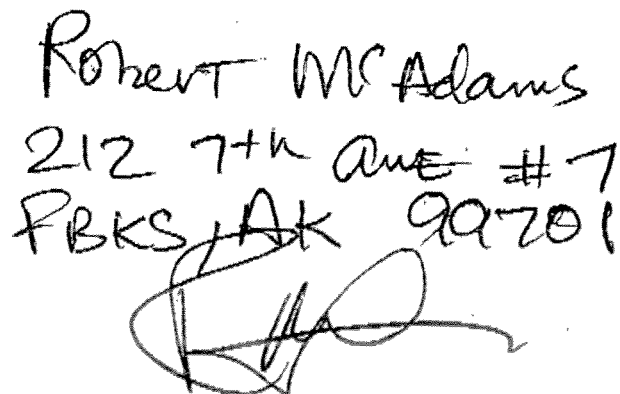 Robert McAdams
212 7th ave #7
FBKS, AK 99701